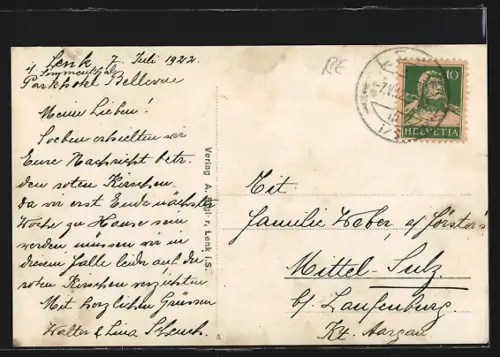 Lenk 7. Juli 1922
i/ Simmental
Parkhotel Bellevue
Meine Lieben!
Soeben erhielten wir
Eure Nachricht betr.
den roten Kirschen
da wir erst Ende nächster
Woche zu Hause sein
werden müssen wir in
diesem Falle leider auf die
roten Kirschen verzichten
Mit herzlichen Grüssen
Walter & Lina
BE
Verlag A. Lenk i. S.
10
HELVETIA
Tit
Familie Weber, a/ Försters
Mittel-Sulz
b/ Laufenburg
Kt. Aargau